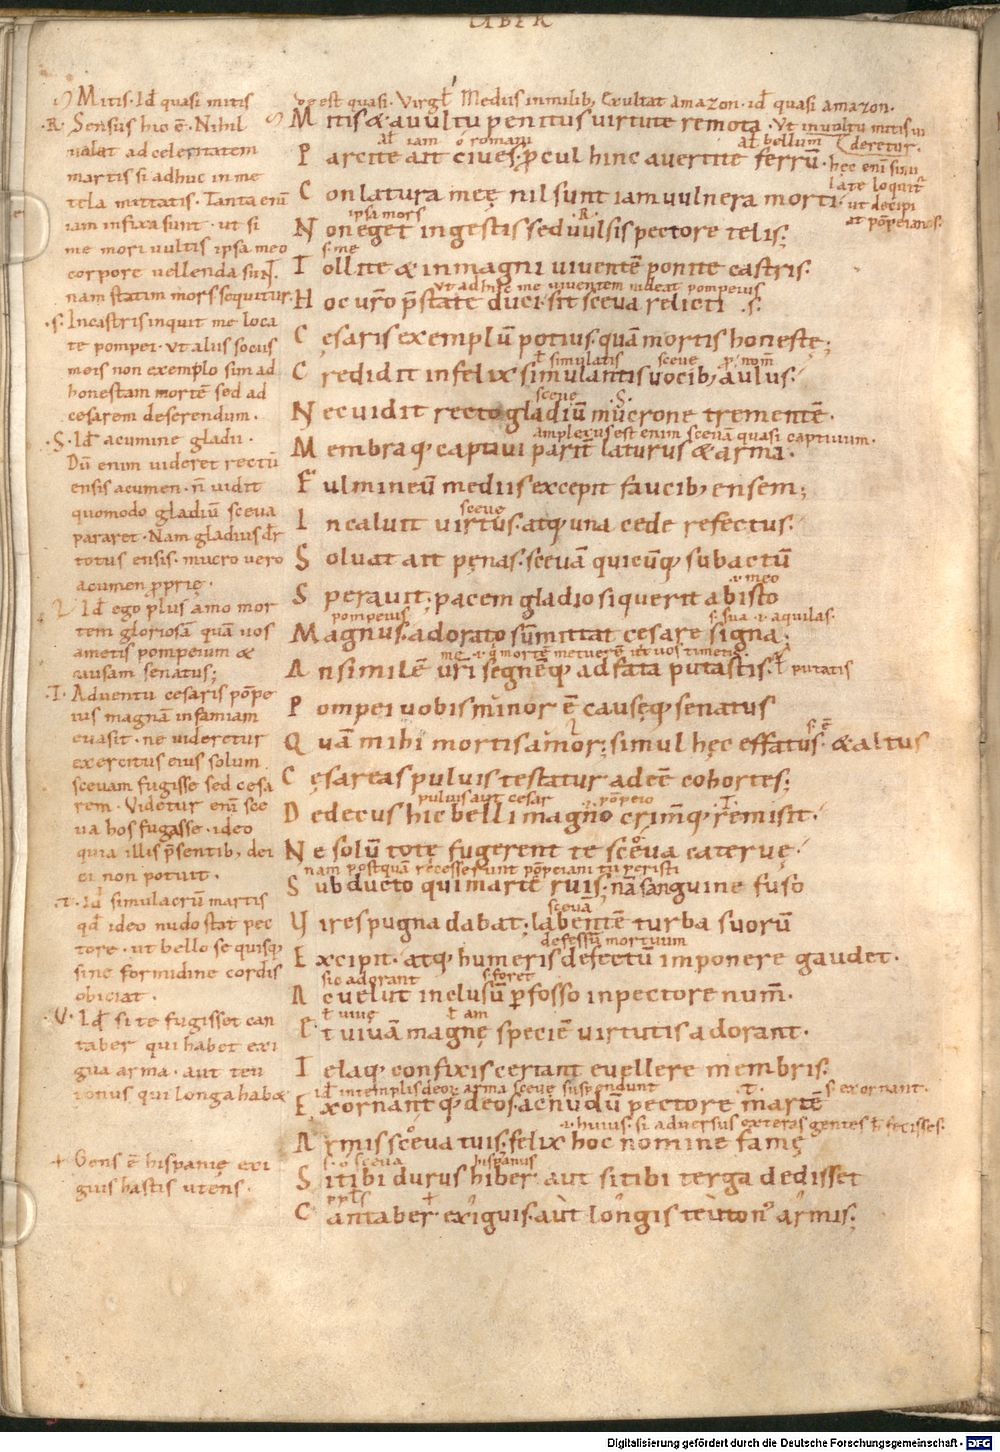 LIBER
Mitis. Id quasi mitis
.R. Sensus hic ē. Nihil
ualat ad celeritatem
martis si adhuc in me
tela mittatis. Tanta enī
iam infixa sunt. ut si
me mori uultis ipsa meo
corpore uellenda sunt.
nam statim mors sequitur.
.s. In castris inquit me loca
te pompei. Ut alus socus
meis non exemplo sim ad
honestam mortē sed ad
cesarem deserendum.
.S. Id acumine gladii.
Dū enim uideret rectū
ensis acumen. n̄ uidit
quomodo gladiū sceua
pararet. Nam gladius dr̄
totus ensis. mucro uero
acumen ꝓprię.
Id ego plus amo mor
tem gloriosā quā uos
ametis pompeium &
causam senatus;
.T. Aduentu cesaris pōpe
ius magnā infamiam
euasit. ne uideretur
exercitus eius solum
sceuam fugisse sed cesa
rem. Videtur enī sce
ua hos fugasse. ideo
quia illis p̄sentib; dei
ei non potuit.
.t. Id simulacrū martis
qd ideo nudo stat pec
tore. ut bello se quisq;
sine formidine cordis
obiciat.
.V. Id si te fugisset can
taber qui habet exi
gua arma. aut teu
tonus qui longa hab&
+ Gens ē hispanię exi
guis hastis utens.
est quasi. Virgł Mediis in milib; Exultat amazon. id quasi amazon.
Mitis & a uultu penitus uirtute remota. Ut in uultu mitis ui
deretur.
ał iam o romani ał bellum
Parcite ait ciues. ꝓcul hinc auertite ferrū.
hęc enī simu
late loquit̄
ut decipi
at pōpeianos.
Conlatura meę nil sunt iam uulnera morti.
ipsa mors .R.
Non eget ingestis sed uulsis pectore telis;
s. me
Tollite & in magni uiuentē ponite castris.
ut adhuc me uiuentem uideat pompeius
Hoc uro p̄state duci. sit sceua relicti .s.
Cęsaris exemplū potius. quā mortis honestę;
ł simulatis sceue ꝓ nom̄
Credidit infelix simulantis uocib; aulus.
sceue .S.
Nec uidit recto gladiū mucrone trementē.
amplexus est enim sceuā quasi captiuum.
Membraq; captiui parit laturus & arma.
Fulmineū mediis excepit faucib; ensem;
sceue
Incaluit uirtus. atq; una cede refectus.
Soluat ait pęnas. sceuā quicūq; subactū
.i. meo
Sperauit; pacem gladio si querit ab isto
pompeius s. sua .i. aquilas.
Magnus. adorato sūmittat cesare signa;
An similē uri segnēq; ad fata putastis. ł putatis
Pompei uobis minor ē causęq; senatus
s. ē
Quā mihi mortis amor; simul hęc effatus. & altus
Cęsareas puluis testatur adeē cohortes;
puluis aut cesar .i. pōpeio .T.
Dedecus hic belli magno crimq; remisit.
Ne solū totę fugerent te scęua cateruę.
nam postquā recesserunt pōpeiani tu peristi
Subducto qui marte ruis; nā sanguine fuso
sceuā
Vires pugna dabat; labentē turba suorū
defessū mortuum
Excipit. atq; humeris defectū imponere gaudet.
sic adorant s. foret
Ac uelut inclusū ꝑfosso in pectore num̄.
ł uiuę ł am
Et uiuā magnę speciē uirtutis adorant.
Telaq; confixis certant euellere membris.
id in templis deor arma sceuę suspendunt .t. s. exornant.
Exornantq; deos. ac nudū pectore martē
.i. huius. si aduersus exteras gentes ł fecisses.
Armis scęua tuis. felix hoc nomine famę
s. o sceua hispanus
Si tibi durus hiber aut si tibi terga dedisset
+
Cantaber exiguis. aut longis teuton' armis;
Digitalisierung gefördert durch die Deutsche Forschungsgemeinschaft - DFG